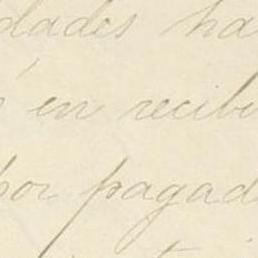 dades ha
en recibi
por pagad